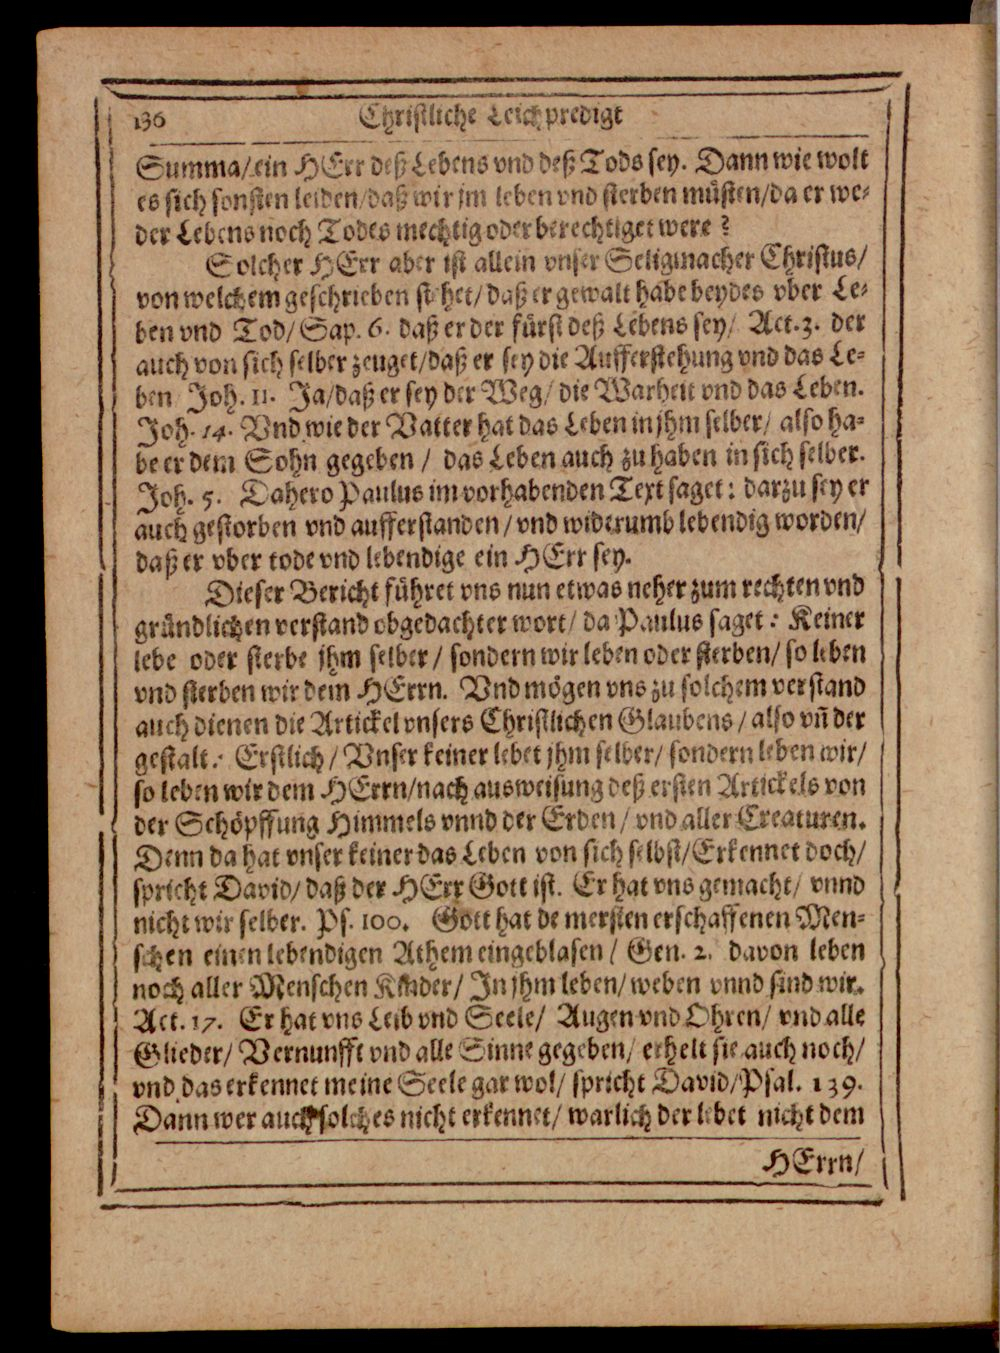 136 Christliche Leichpredigt
Summa/ ein HErr deß Lebens vnd deß Tods sey. Dann wie wolt
es sich sonsten leiden/ daß wir jm leben vnd sterben müsten/ da er we-
der Lebens noch Todes mechtig oder berechtiget were?
Solcher HErr aber ist allein vnser Seligmacher Christus/
von welchem geschrieben stehet/ daß er gewalt habe beydes vber Le-
ben vnd Tod/ Sap. 6. daß er der fürst deß Lebens sey/ Act. 3. der
auch von sich selber zeuget/ daß er sey die Aufferstehung vnd das Le-
ben Joh. 11. Ja/ daß er sey der Weg/ die Warheit vnd das Leben.
Joh. 14. Vnd wie der Vatter hat das Leben in jhm selber/ also ha-
be er dem Sohn gegeben / das Leben auch zu haben in sich selber.
Joh. 5. Dahero Paulus im vorhabenden Text saget: darzu sey er
auch gestorben vnd aufferstanden / vnd widerumb lebendig worden/
daß er vber tode vnd lebendige ein HErr sey.
Dieser Bericht führet vns nun etwas neher zum rechten vnd
gründlichen verstand obgedachter wort/ da Paulus saget: Keiner
lebe oder sterbe jhm selber / sondern wir leben oder sterben/ so leben
vnd sterben wir dem HErrn. Vnd mögen vns zu solchem verstand
auch dienen die Artickel vnsers Christlichen Glaubens / also vñ der
gestalt: Erstlich / Vnser keiner lebet jhm selber/ sondern leben wir/
so leben wir dem HErrn/ nach ausweisung deß ersten Artickels von
der Schöpffung Himmels vnnd der Erden / vnd aller Creaturen.
Denn da hat vnser keiner das Leben von sich selbst/ Erkennet doch/
spricht David/ daß der HErr Gott ist. Er hat vns gemacht/ vnnd
nicht wir selber. Ps. 100. Gott hat de mersten erschaffenen Men-
schen einen lebendigen Athem eingeblasen / Gen. 2. davon leben
noch aller Menschen Kinder/ In jhm leben/ weben vnnd sind wir.
Act. 17. Er hat vns Leib vnd Seele/ Augen vnd Ohren/ vnd alle
Glieder/ Vernunfft vnd alle Sinne gegeben/ erhelt sie auch noch/
vnd das erkennet meine Seele gar wol/ spricht David/ Psal. 139.
Dann wer auch solches nicht erkennet/ warlich der lebet nicht dem
HErrn/